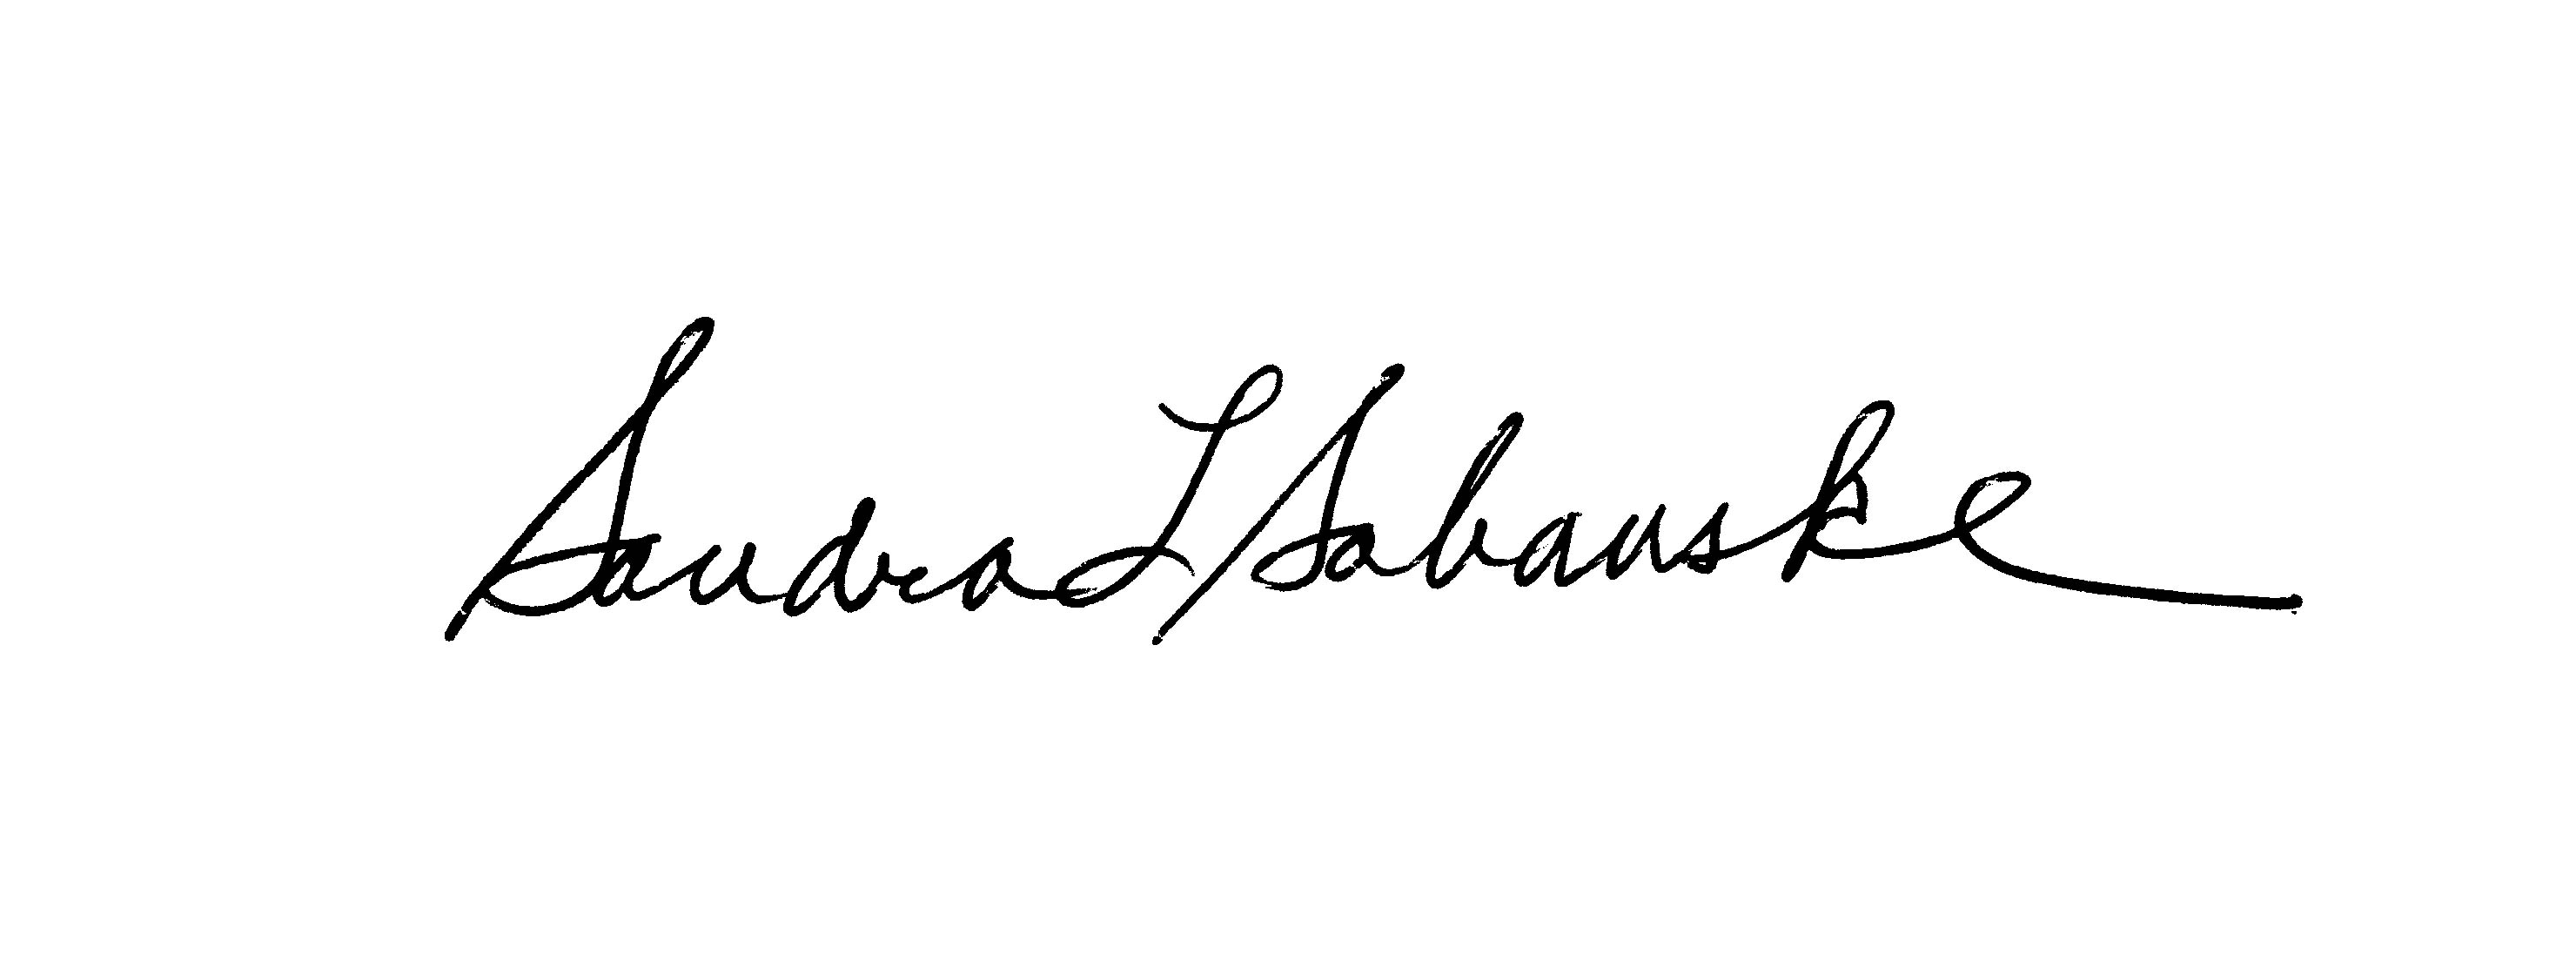 Sandra L Sabanske